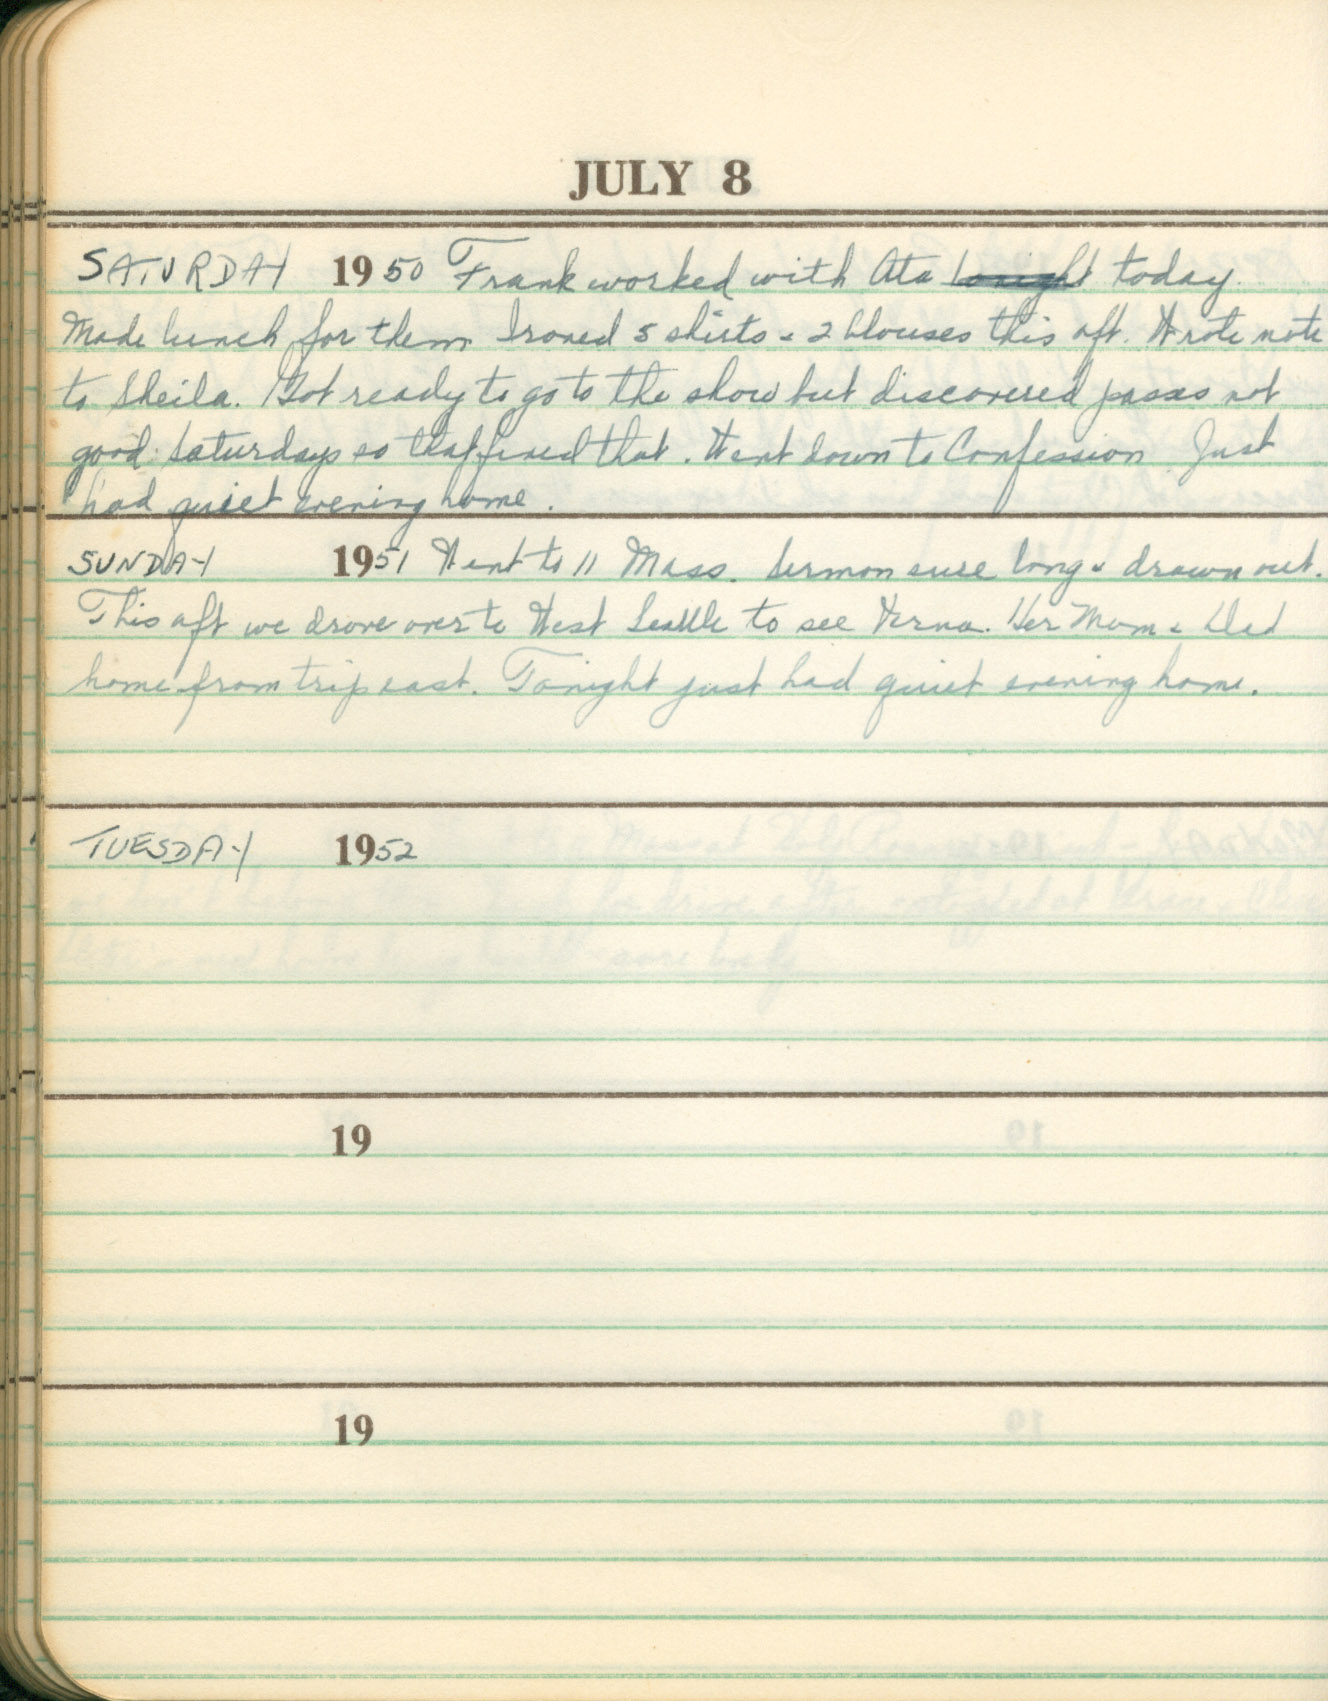 JULY 8
SATURDAY 1950 Frank worked with Ata tonight today.
Made lunch for them. Ironed 5 shirts & 2 blouses this aft. Wrote note
to Sheila. Got ready to go to the show but discovered passes not
good Saturdays so that fixed that. Went down to Confession. Just
had quiet evening home.
SUNDAY 1951 Went to 11 Mass. Sermon sure long & drawn out.
This aft we drove over to West Seattle to see Verna. Her Mom & Dad
home from trip east. Tonight just had quiet evening home.
TUESDAY 1952
19
19